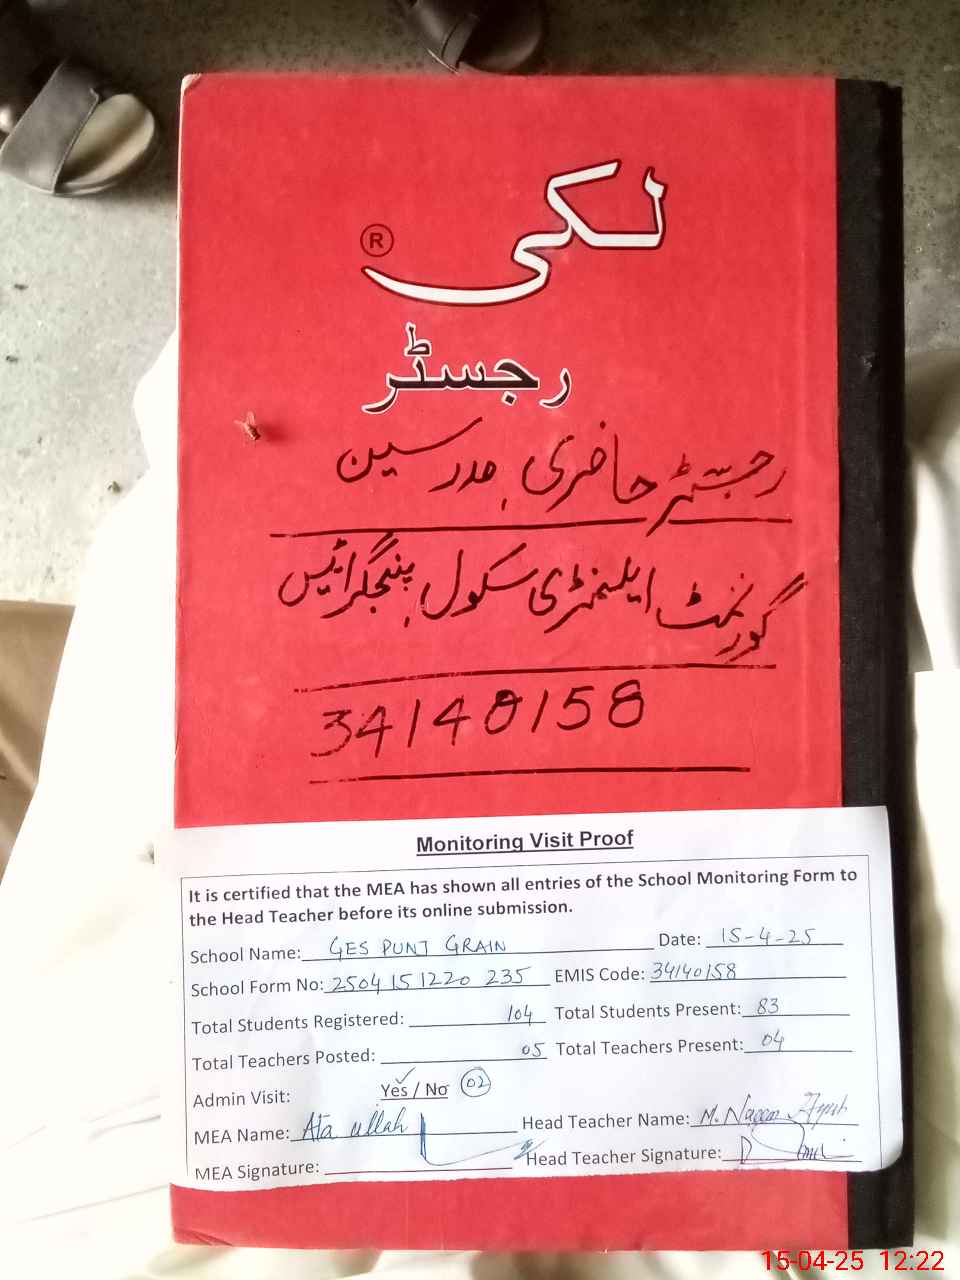 لکی
®
رجسٹر
رجسٹر حاضری مدرسین
گورنمنٹ ایلیمنٹری سکول پنجگرائیں
34140158
Monitoring Visit Proof
It is certified that the MEA has shown all entries of the School Monitoring Form to
the Head Teacher before its online submission.
School Name: GES PUNJ GRAIN Date: 15-4-25
School Form No: 2504 15 1220 235 EMIS Code: 34140158
Total Students Registered: 104 Total Students Present: 83
Total Teachers Posted: 05 Total Teachers Present: 04
Admin Visit: Yes / No 02
MEA Name: Ata ullah Head Teacher Name: M. Naeem Ayub
MEA Signature: Head Teacher Signature:
15-04-25 12:22